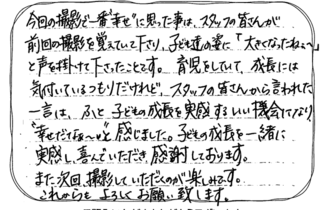 今回の撮影で一番"幸せ"に思った事は、スタッフの皆さんが
前回の撮影を覚えていて下さり、子ども達の姿に「大きくなったねぇ〜」
と声を掛けて下さったことです。育児をしていて、成長には
気付いているつもりだけれど、スタッフの皆さんから言われた
一言は、ふと子どもの成長を実感するいい機会になり
"幸せだなぁ〜"と感じました。子どもの成長を一緒に
実感し、喜んでいただき、感謝しております。
また次回、撮影していただくのが楽しみです。
これからもよろしくお願い致します。